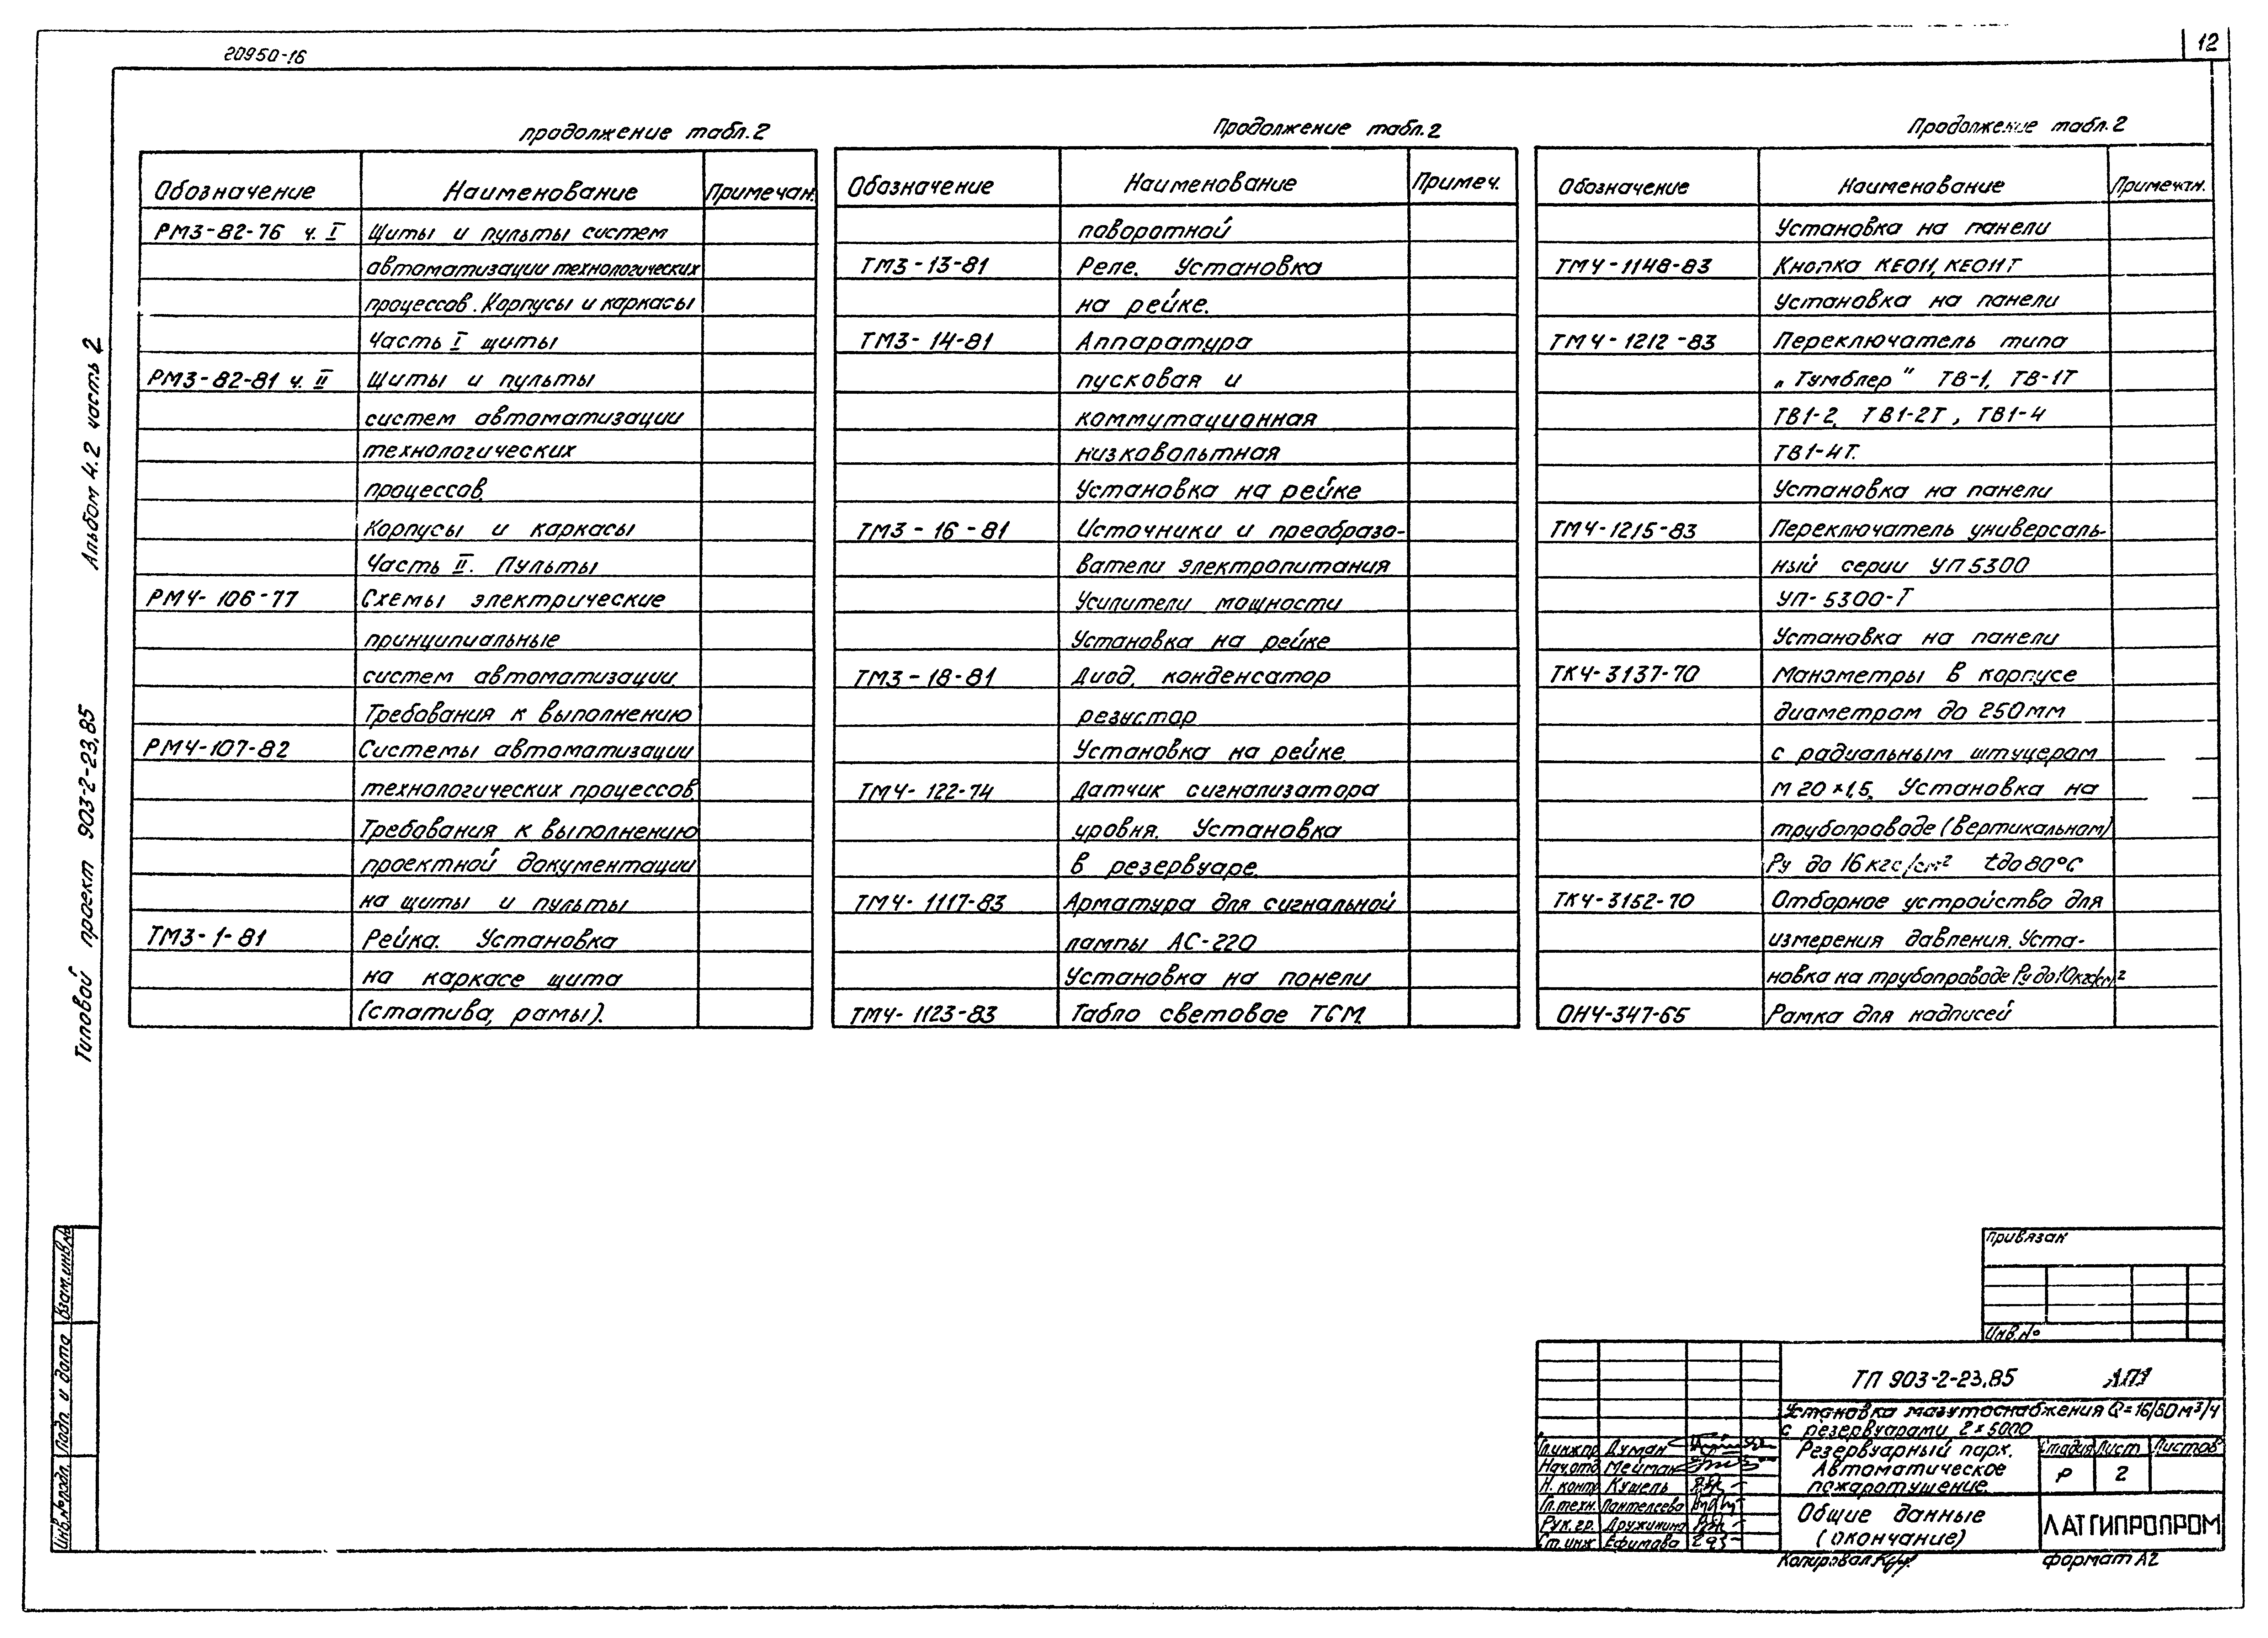 20950-16
12
Альбом 4.2 часть 2
Типовой проект 903-2-23,85
продолжение табл.2
Обозначение Наименование Примечан.
РМ3-82-76 ч. I Щиты и пульты систем
автоматизации технологических
процессов. Корпусы и каркасы
Часть I щиты
РМ3-82-81 ч. II Щиты и пульты
систем автоматизации
технологических
процессов.
Корпусы и каркасы
Часть II. Пульты
РМ4-106-77 Схемы электрические
принципиальные
систем автоматизации.
Требования к выполнению
РМ4-107-82 Системы автоматизации
технологических процессов.
Требования к выполнению
проектной документации
на щиты и пульты
ТМ3-1-81 Рейка. Установка
на каркасе щита
(статива, рамы).
Продолжение табл.2
Обозначение Наименование Примеч.
поворотной
ТМ3-13-81 Реле. Установка
на рейке.
ТМ3-14-81 Аппаратура
пусковая и
коммутационная
низковольтная
Установка на рейке
ТМ3-16-81 Источники и преобразо-
ватели электропитания
Усилители мощности
Установка на рейке
ТМ3-18-81 Диод, конденсатор
резистор
Установка на рейке.
ТМ4-122-74 Датчик сигнализатора
уровня. Установка
в резервуаре.
ТМ4-1117-83 Арматура для сигнальной
лампы АС-220
Установка на понели
ТМ4-1123-83 Табло световое ТСМ.
Продолжение табл.2
Обозначение Наименование Примечан.
Установка на панели
ТМ4-1148-83 Кнопка КЕ011, КЕ011Т
Установка на панели
ТМ4-1212-83 Переключатель типа
„Тумблер" ТВ-1, ТВ-1Т
ТВ1-2, ТВ1-2Т, ТВ1-4
ТВ1-4Т.
Установка на панели
ТМ4-1215-83 Переключатель универсаль-
ный серии УП5300
УП-5300-Т
Установка на панели
ТК4-3137-70 Манометры в корпусе
диаметром до 250мм
с радиальным штуцером
М20×1,5. Установка на
трубопроводе (вертикальном)
Ру до 16кгс/см² tдо80°С
ТК4-3152-70 Отборное устройство для
измерения давления. Уста-
новка на трубопроводе Ру до 10кгс/см²
ОН4-347-65 Рамка для надписей
Привязан
Инв.№
Взам.инв.№
Подп. и дата
Инв.№подл.
ТП 903-2-23,85 АП1
Установка мазутоснабжения Q=16/80м³/ч
с резервуарами 2×5000
Гл.инж.пр. Думан
Нач.отд. Мейман
Н. контр. Кушель
Гл.техн. Пантелеева
Рук.гр. Дружинина
Ст.инж. Ефимова
Резервуарный парк.
Автоматическое
пожаротушение.
Стадия Лист Листов
Р 2
Общие данные
(окончание)
ЛАТГИПРОПРОМ
Копировал
формат А2